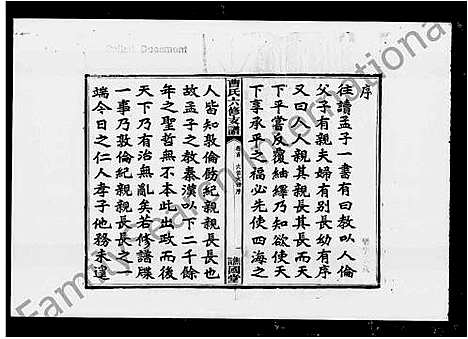 序
往讀孟子一書有曰教以人倫
父子有親夫婦有別長幼有序
又曰人人親其親長其長而天
下平嘗反覆紬繹乃知欲使天
下享承平之福必先使四海之
曹氏六修支譜
譙國堂
人皆知敦倫勵紀親親長長也
故孟子之教秦漢以下二千餘
年之聖哲無不本此出政而後
天下乃有治無亂矣若修譜牒
一事乃敦倫紀親親長長之一
端令日之仁人孝子他務未遑
FamilySearch International